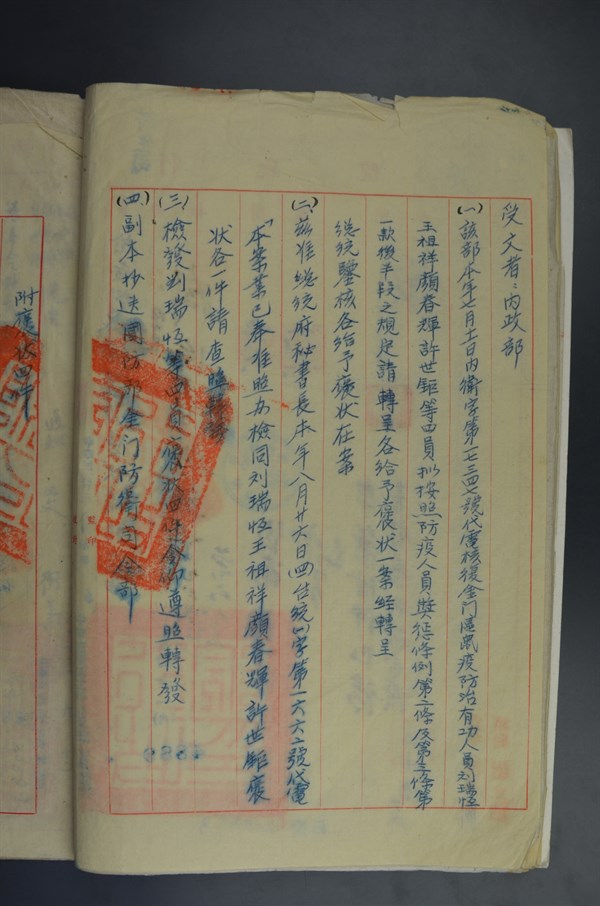 受文者：內政部
(一)該部本年七月十一日內衛字第一七三四七號代電核復金门區鼠疫防治有功人員刘瑞恆
王祖祥顏春輝許世鉅等四員拟按照防疫人員獎惩條例第二條及第三條第
一款後半段之規定請轉呈各給予褒状一案経轉呈
總統鑒核各给予褒状在案
(二)茲准總統府秘書長本年八月廿六日(四)台統(一)字第一六六二號代電
「本案業已奉准照办檢同刘瑞恆王祖祥顏春輝許世鉅褒
状各一件請查照轉給
(三)檢發刘瑞恆等四員褒状四件令仰遵照轉發
(四)副本抄送國防部金门防衛司令部
附褒状四件